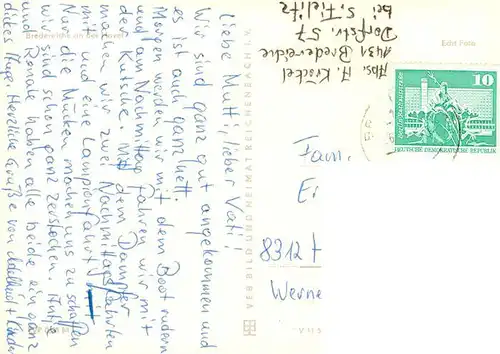 Bredereiche an der Havel
Echt Foto
Liebe Mutti, lieber Vati!
Wir sind ganz gut angekommen und
es ist auch ganz nett.
Morgen werden wir mit dem Boot rudern
und am Nachmittag fahren wir mit
der Kutsche. Mit dem Dampfer
machen wir zwei Nachmittagsfahrten
mit und eine Lampionfahrt
Nur die Mücken machen uns zu schaffen
wir sind schon ganz zerstochen. Antje
und Renale haben alle beide ein ganz
dickes Auge. Herzliche Grüße von Adelheid + Kinder
Abs. A. Kröckel
1431 Bredereiche
Dorfstr. 57
bei S. Tielitz
10
DEUTSCHE DEMOKRATISCHE REPUBLIK
Fam.
8312
Werne
VEB BILD UND HEIMAT REICHENBACH I. V.